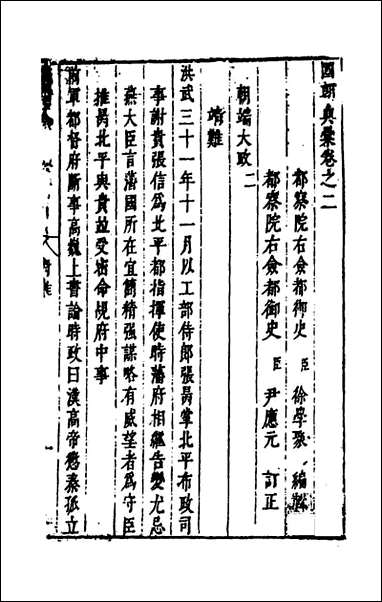 國朝典彙卷之二
都察院右僉都御史 臣 徐學聚 編輯
都察院右僉都御史 臣 尹應元 訂正
朝端大政二
靖難
洪武三十一年十一月以工部侍郎張昺掌北平布政司
事謝貴張信為北平都指揮使時藩府相繼告變尤忌
燕大臣言藩國所在宜簡精强謀略有威望者為守臣
推昺北平與貴並受密命覘府中事
前軍都督府斷事高巍上書論時政曰漢高帝懲秦孤立